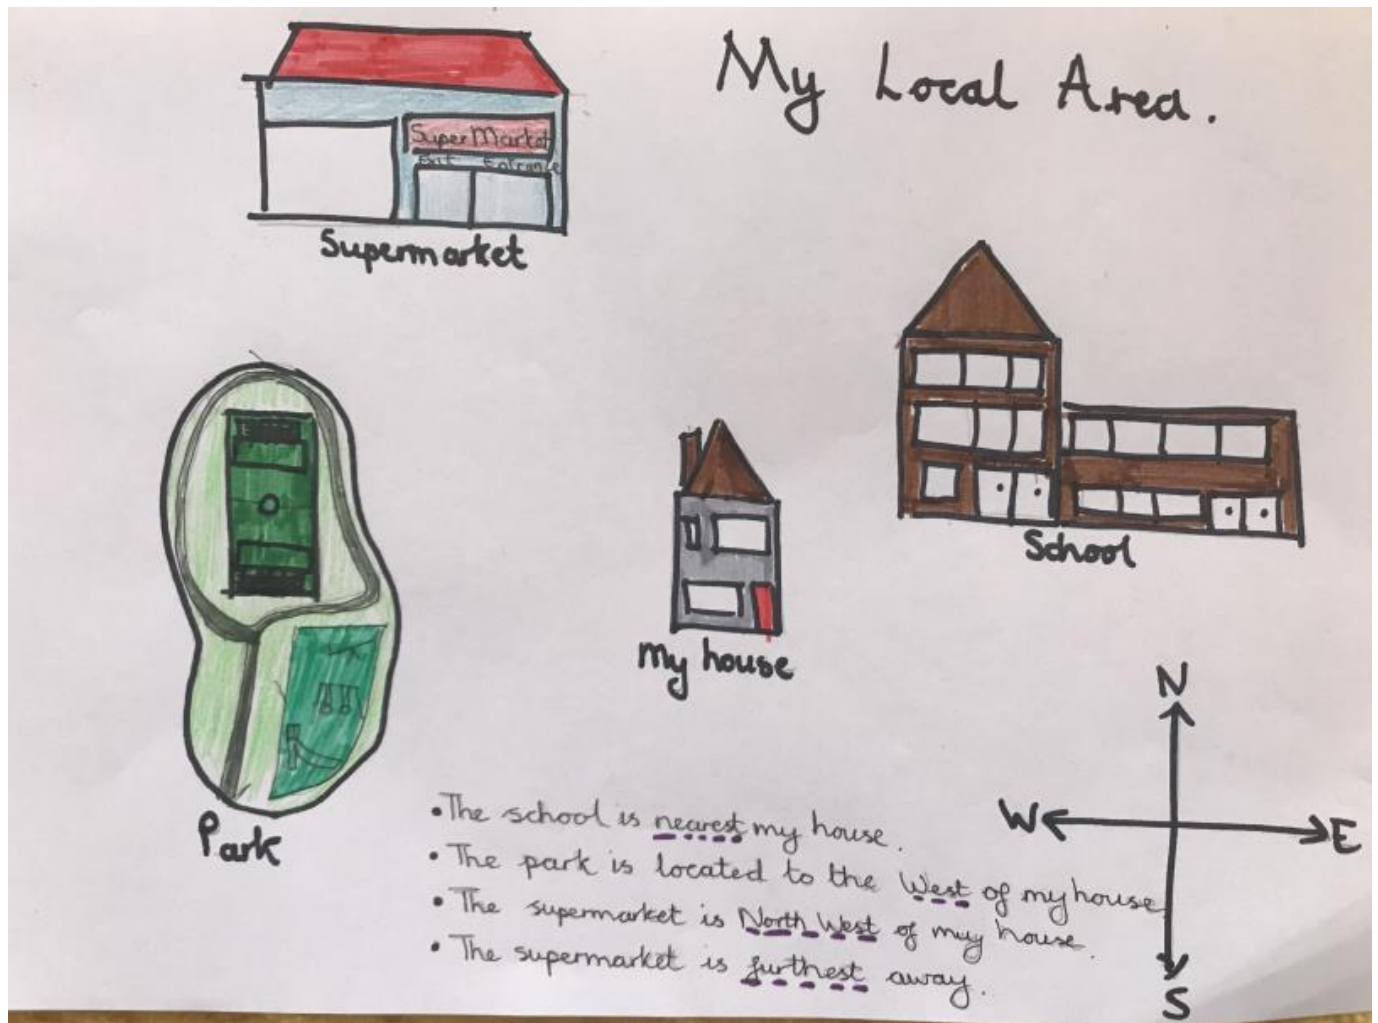 My Local Area.
SuperMarket
Exit Entrance
Supermarket
School
My house
Park
N
W
E
S
• The school is nearest my house.
• The park is located to the West of my house
• The supermarket is North West of my house.
• The supermarket is furthest away.